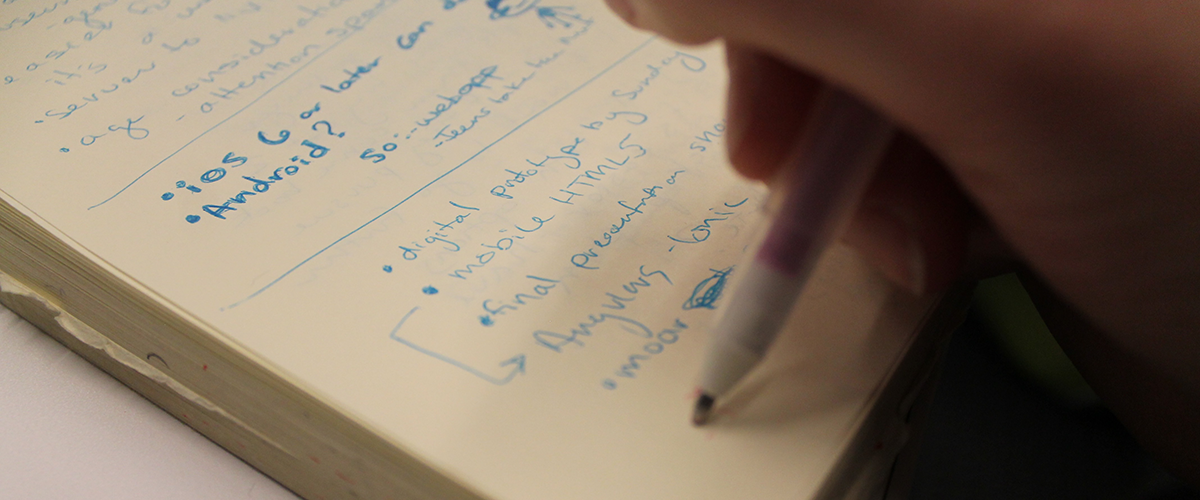 ease of
it's a
• Server to
• age considerations
- attention span
• iOS 6 or later can
• Android?
So:- webapp
- Teens take
• digital prototype by Sunday
• mobile HTML5
• final presentation
Angularjs - Ionic
• moar